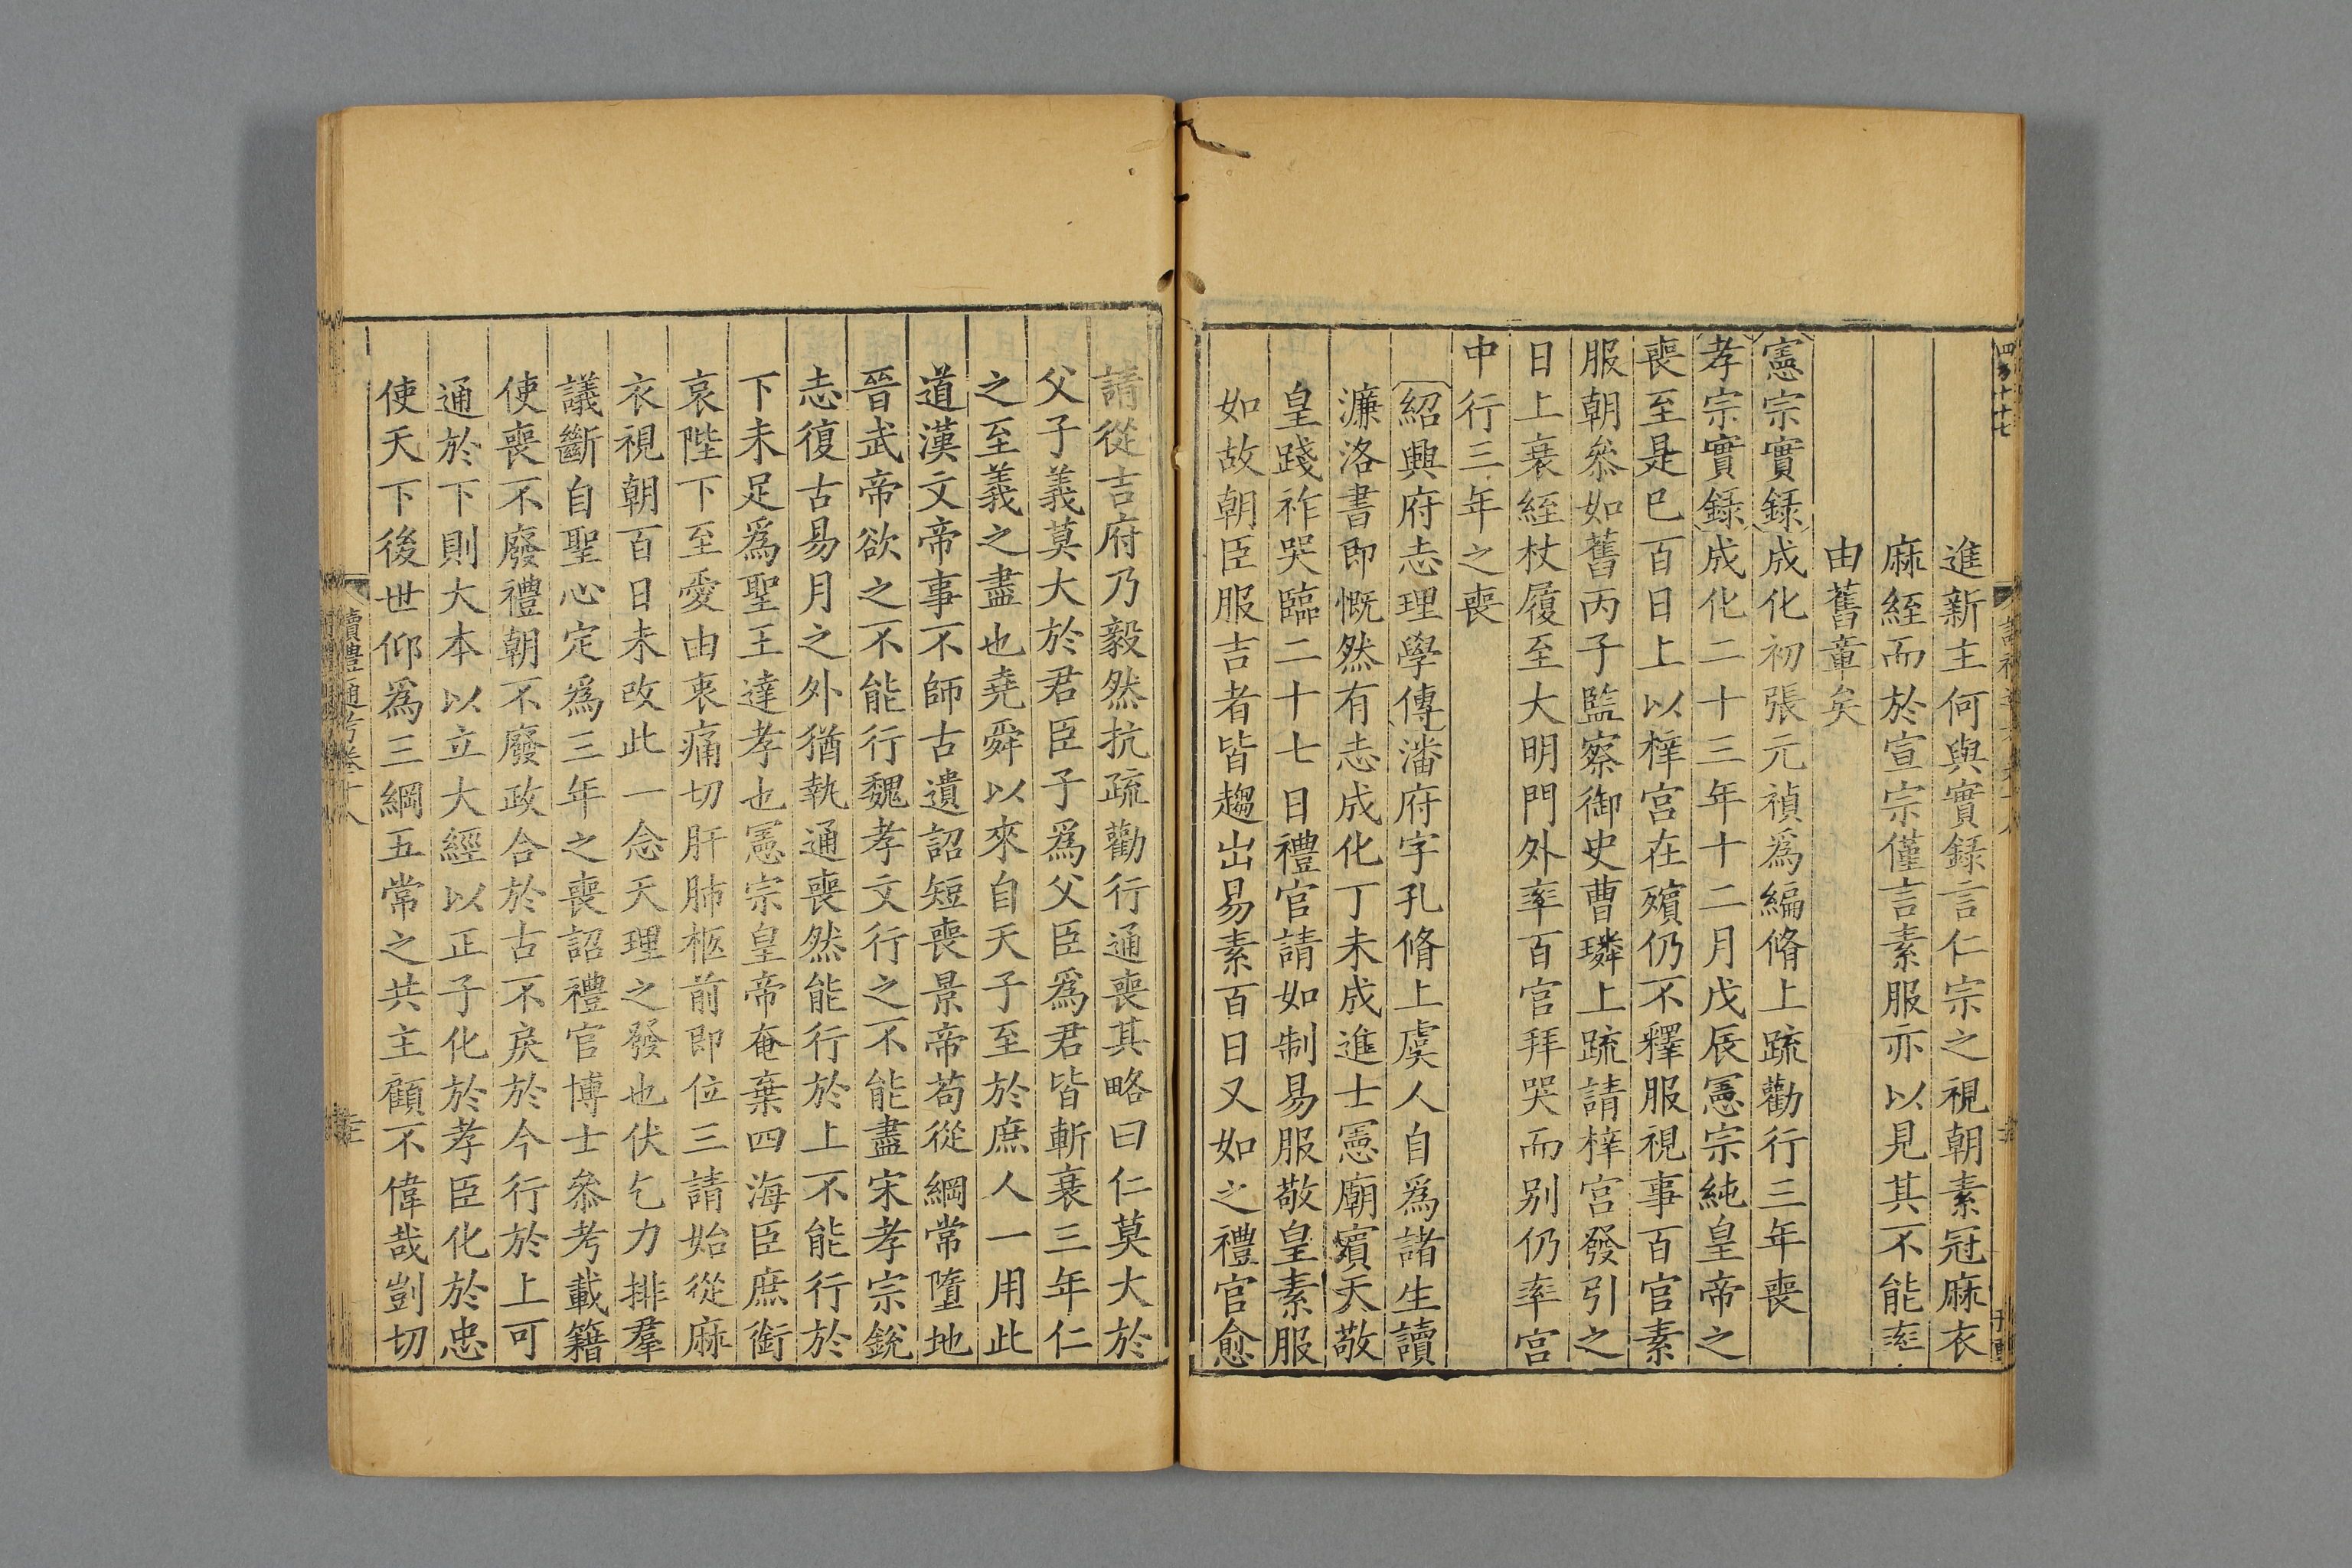 進新主何與實録言仁宗之視朝素冠麻衣
麻絰而於宣宗僅言素服亦以見其不能率
由舊章矣
憲宗實録成化初張元禎爲編脩上疏勸行三年喪
孝宗實録成化二十三年十二月戊辰憲宗純皇帝之
喪至是已百日上以梓宮在殯仍不釋服視事百官素
服朝叅如舊丙子監察御史曹璘上疏請梓宮發引之
日上衰絰杖履至大明門外率百官拜哭而别仍率宮
中行三年之喪
紹興府志理學傳潘府字孔脩上虞人自爲諸生讀
濂洛書即慨然有志成化丁未成進士憲廟賓天敬
皇踐祚哭臨二十七日禮官請如制易服敬皇素服
如故朝臣服吉者皆趨出易素百日又如之禮官愈
請從吉府乃毅然抗疏勸行通喪其略曰仁莫大於
父子義莫大於君臣子爲父臣爲君皆斬衰三年仁
之至義之盡也堯舜以來自天子至於庶人一用此
道漢文帝事不師古遺詔短喪景帝苟從綱常墮地
晉武帝欲之不能行魏孝文行之不能盡宋孝宗銳
志復古易月之外猶執通喪然能行於上不能行於
下未足爲聖王達孝也憲宗皇帝奄棄四海臣庶銜
哀陛下至愛由衷痛切肝肺柩前即位三請始從麻
衣視朝百日未改此一念天理之發也伏乞力排羣
議斷自聖心定爲三年之喪詔禮官博士叅考載籍
使喪不廢禮朝不廢政合於古不戾於今行於上可
通於下則大本以立大經以正子化於孝臣化於忠
使天下後世仰爲三綱五常之共主顧不偉哉剴切
讀禮通考卷十八